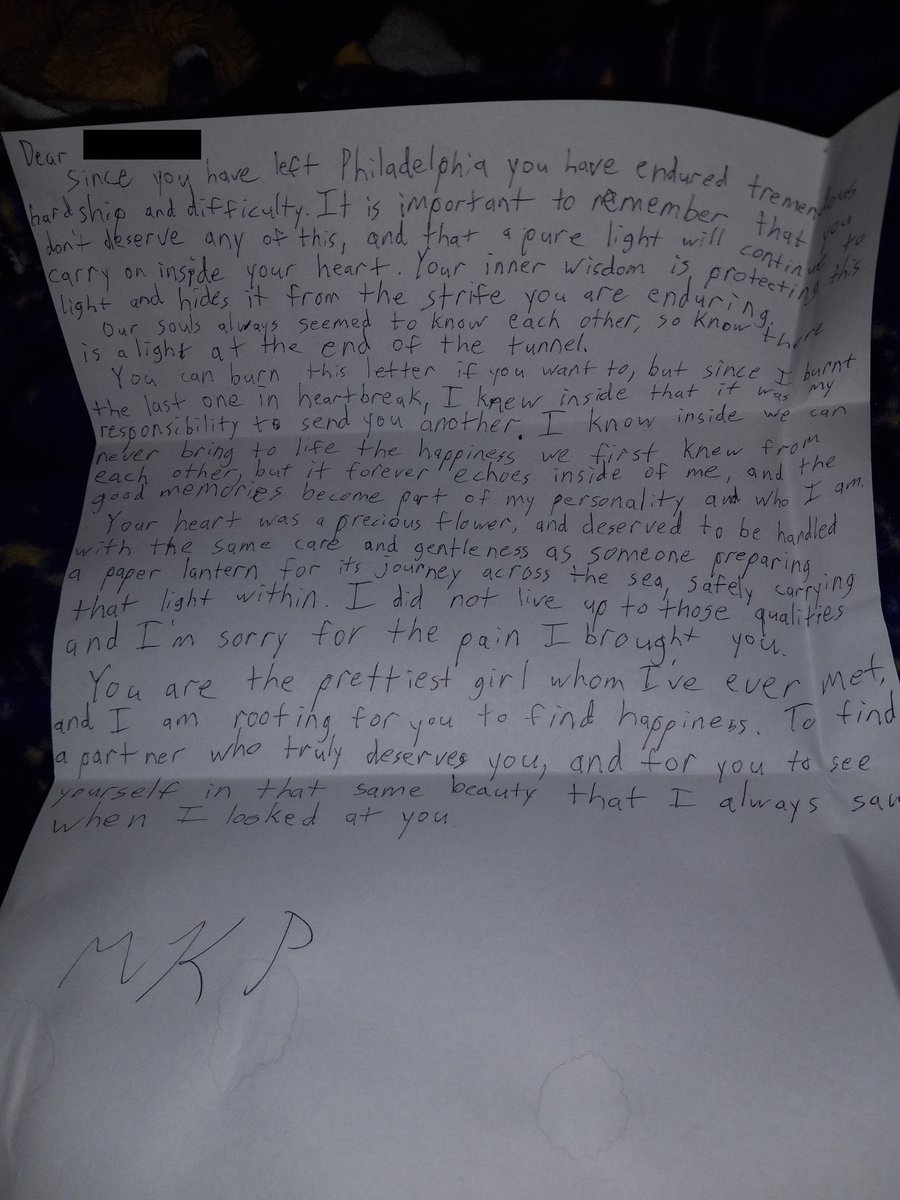 Dear
Since you have left Philadelphia you have endured tremendous
hardship and difficulty. It is important to remember that you
don't deserve any of this, and that a pure light will continue to
carry on inside your heart. Your inner wisdom is protecting this
light and hides it from the strife you are enduring.
Our souls always seemed to know each other, so know there
is a light at the end of the tunnel.
You can burn this letter if you want to, but since I burnt
the last one in heartbreak, I knew inside that it was my
responsibility to send you another. I know inside we can
never bring to life the happiness we first knew from
each other, but it forever echoes inside of me, and the
good memories become part of my personality and who I am.
Your heart was a precious flower, and deserved to be handled
with the same care and gentleness as someone preparing
a paper lantern for its journey across the sea, safely carrying
that light within. I did not live up to those qualities
and I'm sorry for the pain I brought you.
You are the prettiest girl whom I've ever met,
and I am rooting for you to find happiness. To find
a partner who truly deserves you, and for you to see
yourself in that same beauty that I always saw
when I looked at you.
MKP